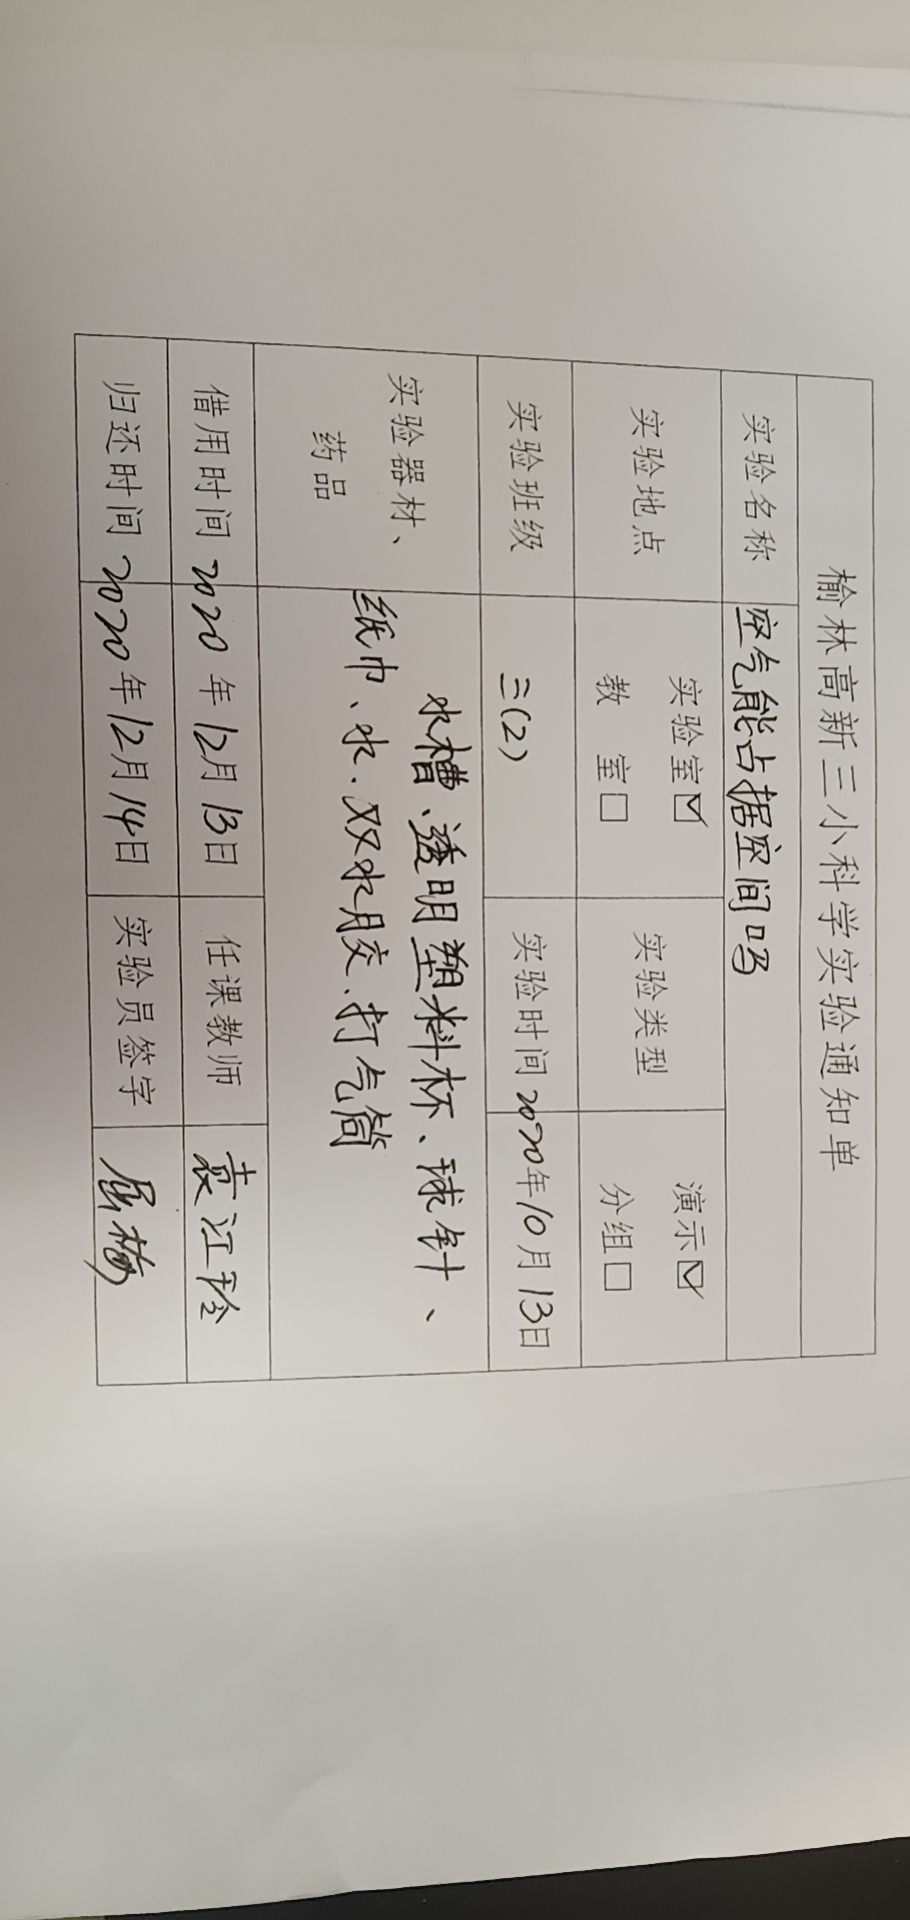 榆林高新三小科学实验通知单
实验名称 空气能占据空间吗
实验地点 实验室☑ 实验类型 演示☑
教 室☐ 分组☐
实验班级 三(2) 实验时间 2020年10月13日
实验器材、 水槽、透明塑料杯、球针、
药品 纸巾、水、双水胶、打气筒
借用时间 2020年12月13日 任课教师 袁江玲
归还时间 2020年12月14日 实验员签字 屈梅